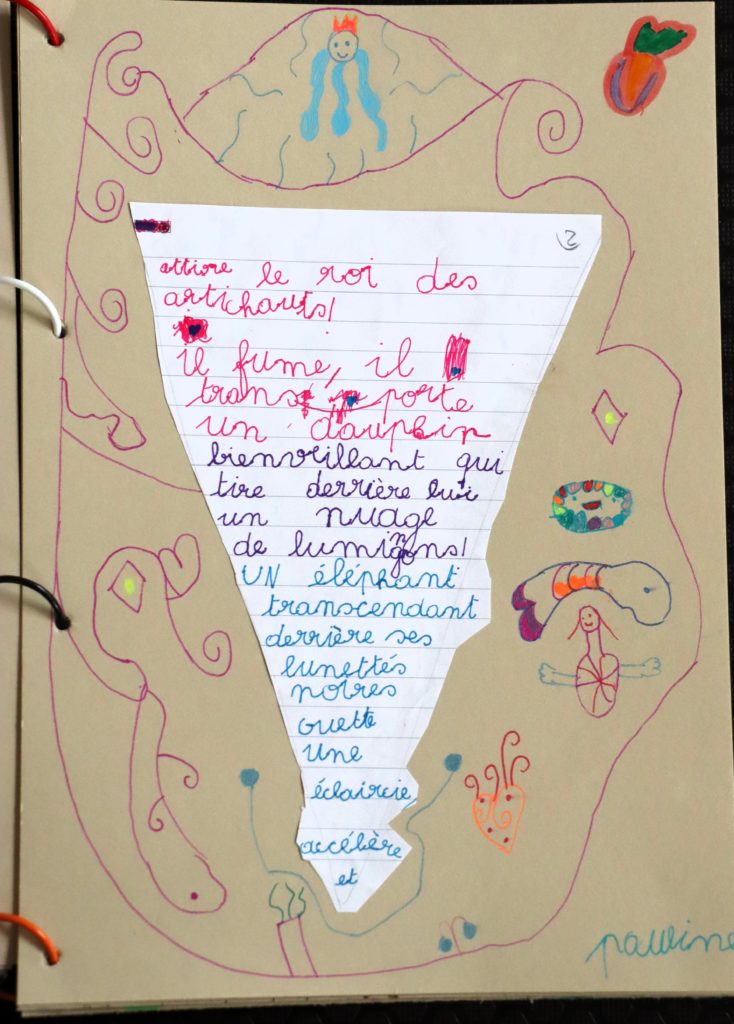 2
attire le roi des
artichauts!
il fume, il
transporte
un dauphin
bienveillant qui
tire derrière lui
un nuage
de lumignons!
UN éléphant
transcendant
derrière ses
lunettes
noires
guette
une
éclaircie
accélère
et
pauline